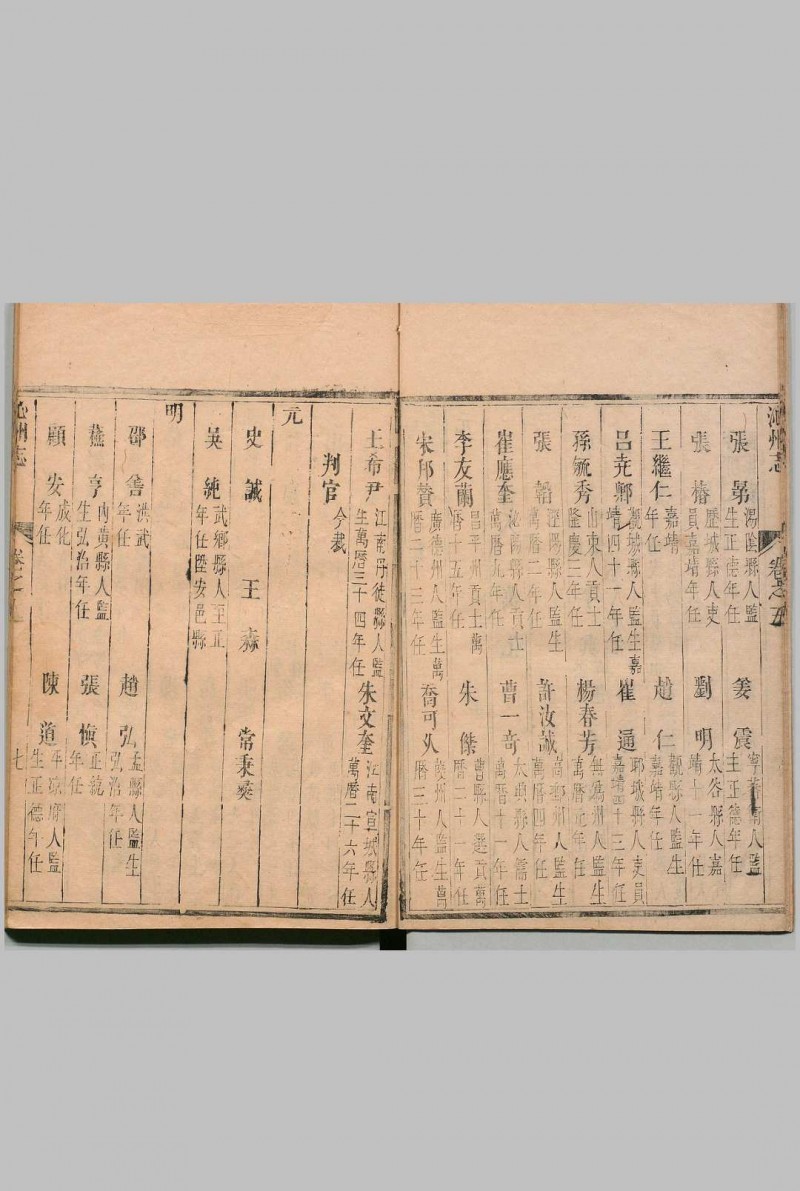 沁州志
卷之五
張昴 湯陰縣人監生正德年任 姜震 人監生正德年任
張椿 歷城縣人吏員嘉靖年任 劉明 太谷縣人嘉靖十一年任
王繼仁 嘉靖年任 趙仁 觀縣人監生嘉靖年任
呂堯卿 觀城縣人監生嘉靖四十一年任 崔通 鄆城縣人吏員嘉靖四十三年任
孫毓秀 山東人貢士隆慶三年任 楊春芳 無為州人監生萬曆元年任
張韜 涇陽縣人監生萬曆二年任 許汝誠 高郵州人監生萬曆四年任
崔應奎 沭陽縣人貢士萬曆九年任 曹一奇 大興縣人儒士萬曆十一年任
李友蘭 昌平州貢士萬曆十五年任 朱傑 曹縣人選貢萬曆二十一年任
宋邦贊 廣德州人監生萬曆二十三年任 喬可久 慶州人監生萬曆三十年任
王希尹 江南丹徒縣人監生萬曆三十四年任 朱文奎 江南宣城縣人萬曆二十六年任
判官 今裁
元
史誠 王森 常秉彝
吳純 武鄉縣人至正年任陞安邑縣
明
邵善 洪武年任 趙弘 孟縣人監生弘治年任
燕亨 內黃縣人監生弘治年任 張慎 正統年任
顧安 成化年任 陳道 平涼府人監生正德年任
沁州志
卷之五
七